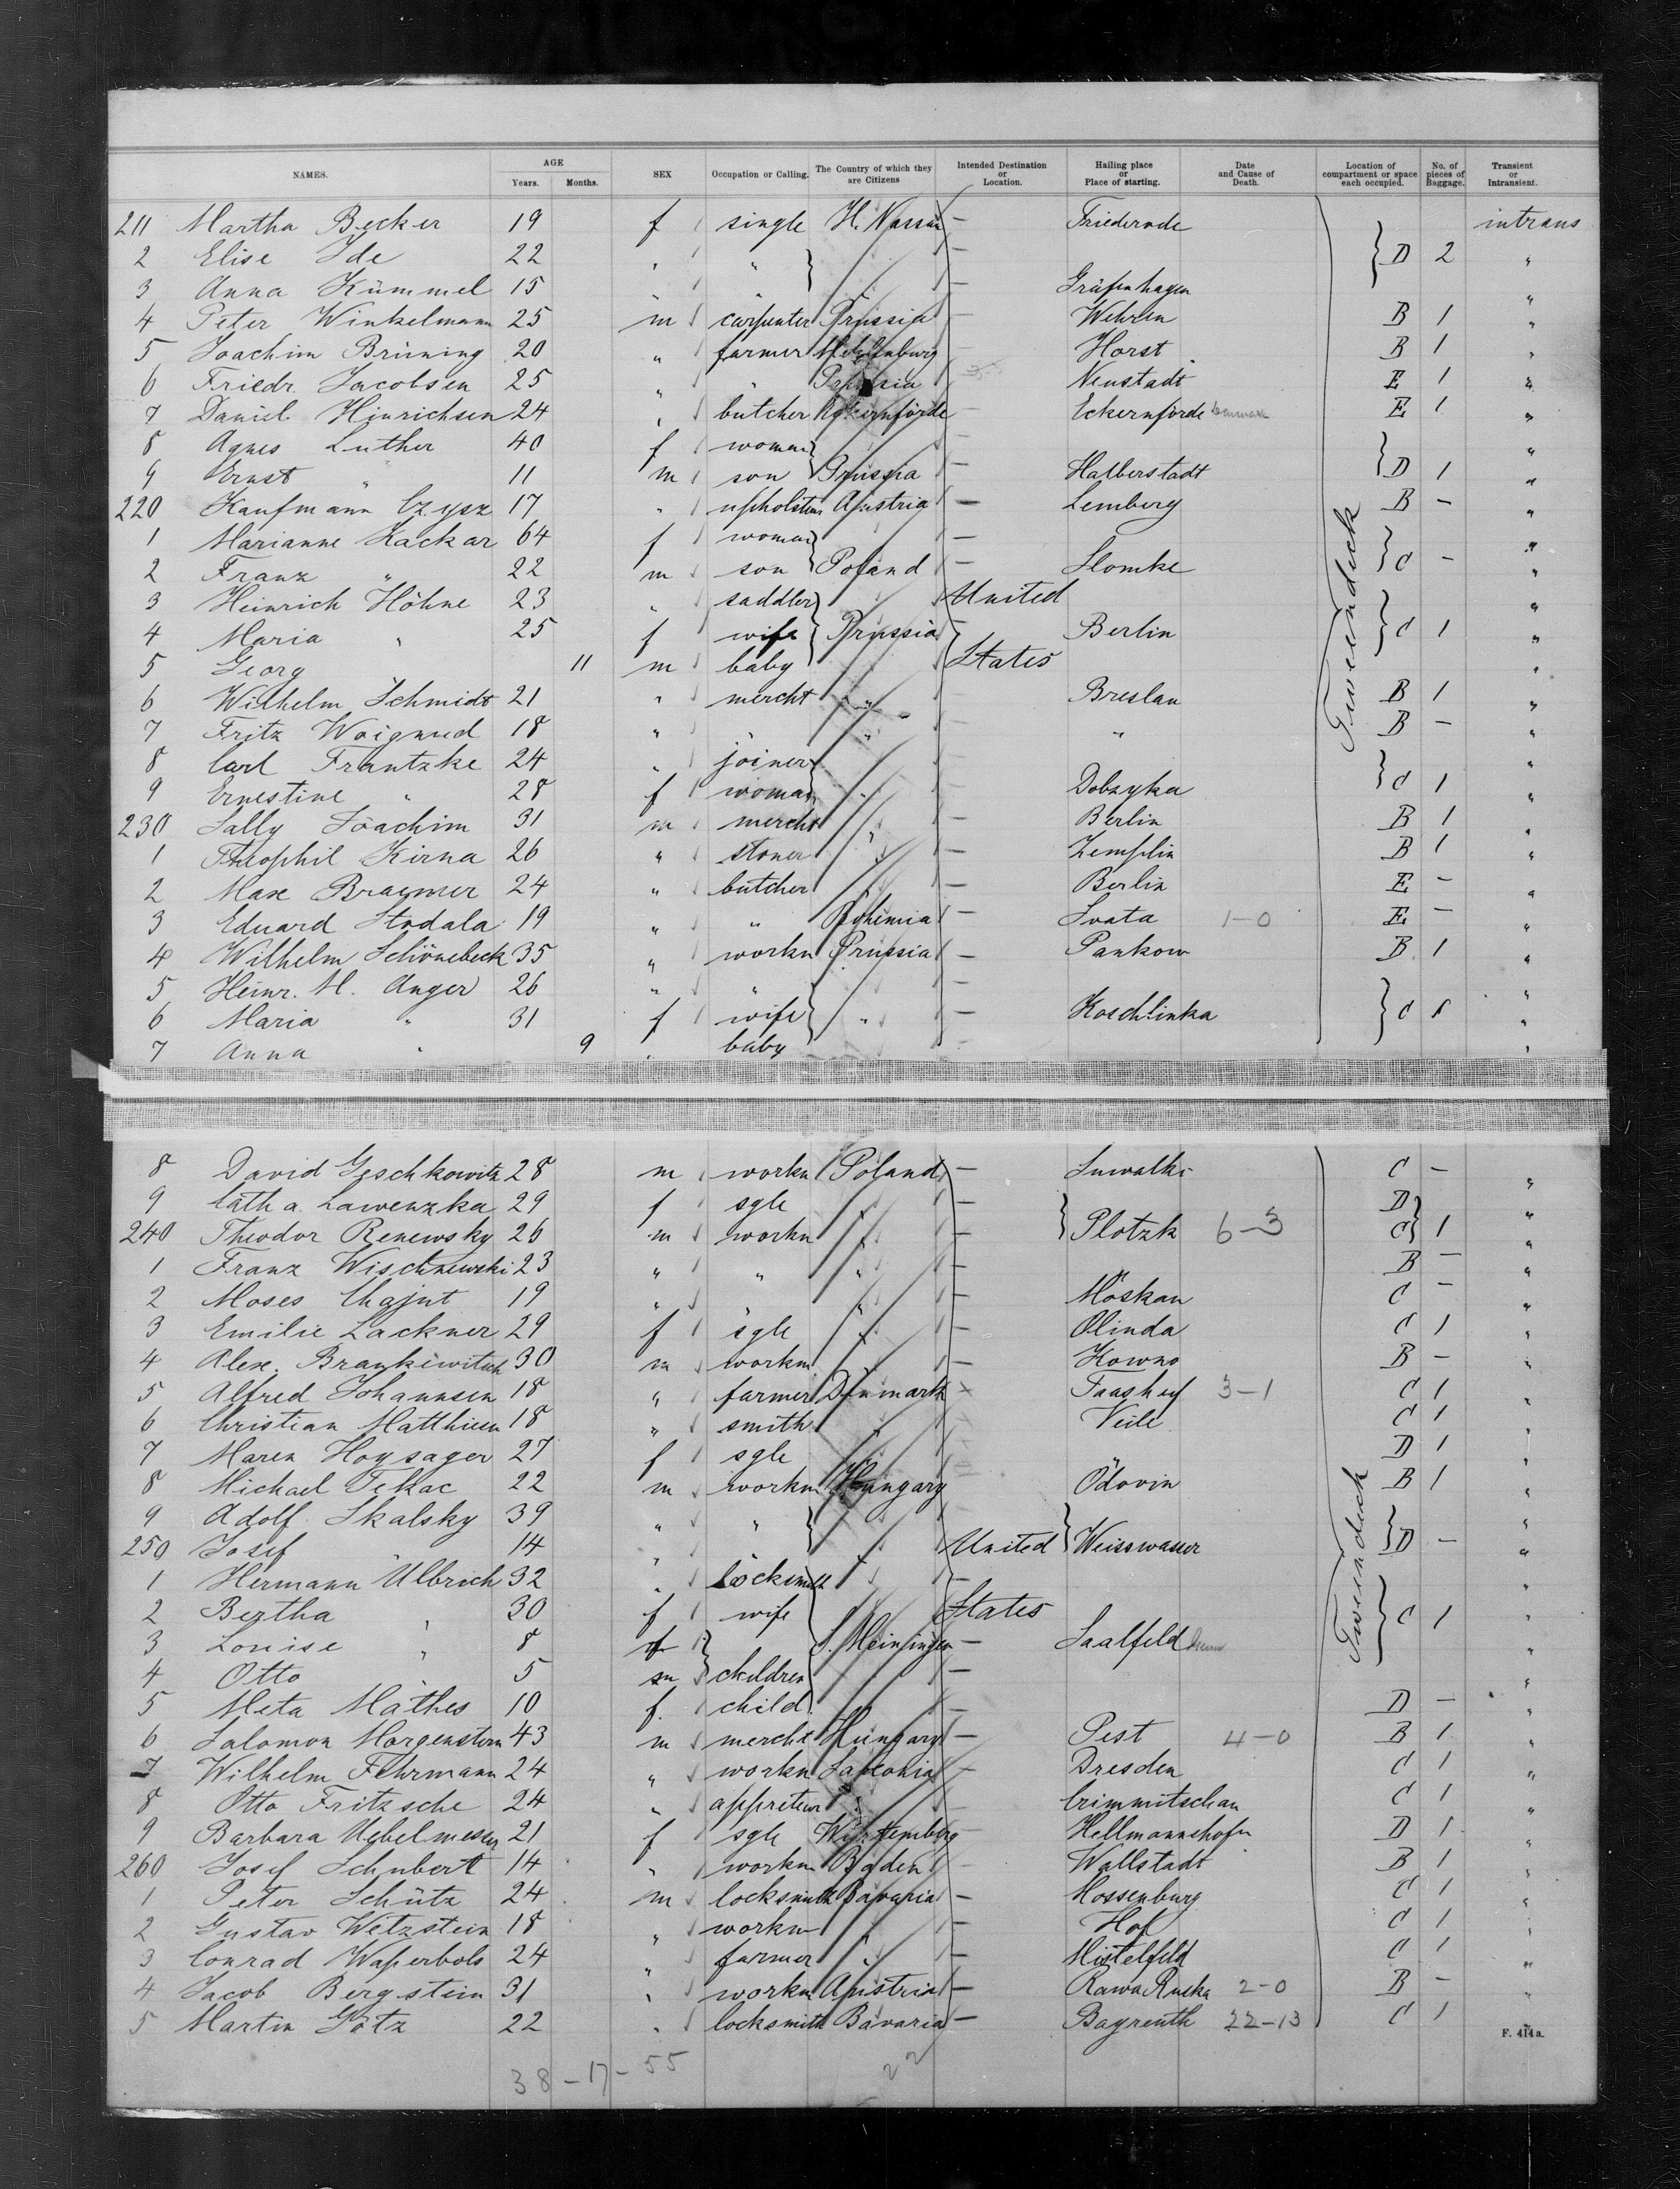 NAMES. AGE Years. Months. SEX Occupation or Calling. The Country of which they are Citizens Intended Destination or Location. Hailing place or Place of starting. Date and Cause of Death. Location of compartment or space each occupied. No. of pieces of Baggage. Transient or Intransient.
211 Martha Becker 19 f single H. Nassau — Friederode intrans
2 Elise Ide 22 " " — D 2 "
3 Anna Kümmel 15 " " — Gräfenhagen "
4 Peter Winkelmann 25 m carpenter Prussia — Wehren B 1 "
5 Joachim Brüning 20 " farmer Mecklenburg — Horst B 1 "
6 Friedr. Jacobsen 25 " " Prussia Neustadt E 1 "
7 Daniel Hinrichsen 24 " butcher Eckernförde — Eckernförde E 1 "
8 Agnes Luther 40 f woman — "
9 Ernst " 11 m son Prussia — Halberstadt D 1 "
220 Kaufmann Czysz 17 " upholsterer Austria — Lemberg B — "
1 Marianne Kackar 64 f woman — "
2 Franz " 22 m son Poland — Slomke C — "
3 Heinrich Höhne 23 " saddler United "
4 Maria " 25 f wife Prussia — Berlin C 1 "
5 Georg 11 m baby States "
6 Wilhelm Schmidt 21 " mercht " — Breslau B 1 "
7 Fritz Woignud 18 " " — " B — "
8 Carl Frantzke 24 " joiner — "
9 Ernestine " 28 f woman " — Dobzyka C 1 "
230 Sally Joachim 31 m mercht — Berlin B 1 "
1 Theophil Kirna 26 " stoner " — Zemplin B 1 "
2 Max Bragmer 24 " butcher — Berlin E — "
3 Eduard Stodala 19 " " Bohemia — Svata 1-0 E — "
4 Wilhelm Schönebeck 35 " workn Prussia — Pankow B 1 "
5 Heinr. M. Anger 26 " " — "
6 Maria " 31 f wife " — Koschlinka C 1 "
7 Anna " 9 " baby — "
Tweendeck
8 David Geschkowitz 28 m workn Poland — Suwalki C — "
9 Catha. Lawenzka 29 f sgle " — D "
240 Theodor Renewsky 26 m workn " — Plotzk 6-3 C 1 "
1 Franz Wischnewski 23 " " " — B — "
2 Moses Chajut 19 " " " — Moskau C — "
3 Emilie Lackner 29 f sgle " — Olinda C 1 "
4 Alex. Brankiwitsch 30 m workn " — Kowno B — "
5 Alfred Johannsen 18 " farmer Denmark — 3-1 C 1 "
6 Christian Matthiesen 18 " smith — Veile C 1 "
7 Maren Hoysager 27 f sgle — D 1 "
8 Michael Tekac 22 m workn Hungary — Ödovin B 1 "
9 Adolf Skalsky 39 " " "
250 Josef " 14 " United Weisswasser D — "
1 Hermann Ulbrich 32 " locksmith — "
2 Bertha " 30 f wife States C 1 "
3 Louise " 8 f S. Meiningen — Saalfeld "
4 Otto " 5 m children — "
5 Meta Mathes 10 f. child — D — "
6 Salomon Morgenstern 43 m mercht Hungary — Pest 4-0 B 1 "
7 Wilhelm Fehrmann 24 " workn Saxonia — Dresden C 1 "
8 Otto Fritzsche 24 " appreteur " — Crimmitschau C 1 "
9 Barbara Uebelmesser 21 f sgle Württemberg — Hellmannshofen D 1 "
260 Josef Schubert 14 " workn Baden — Wallstadt B 1 "
1 Peter Schütz 24 m locksmith Bavaria — Mossenburg C 1 "
2 Gustav Witzstein 18 " workn — Hof C 1 "
3 Conrad 24 " farmer " — Mistelfeld C 1 "
4 Jacob Bergstein 31 " workn Austria — Rawa Ruska 2-0 B — "
5 Martin Götz 22 " locksmith Bavaria — Bayreuth 22-13 C 1 "
Tweendeck
F. 414a.
38-17-55 22